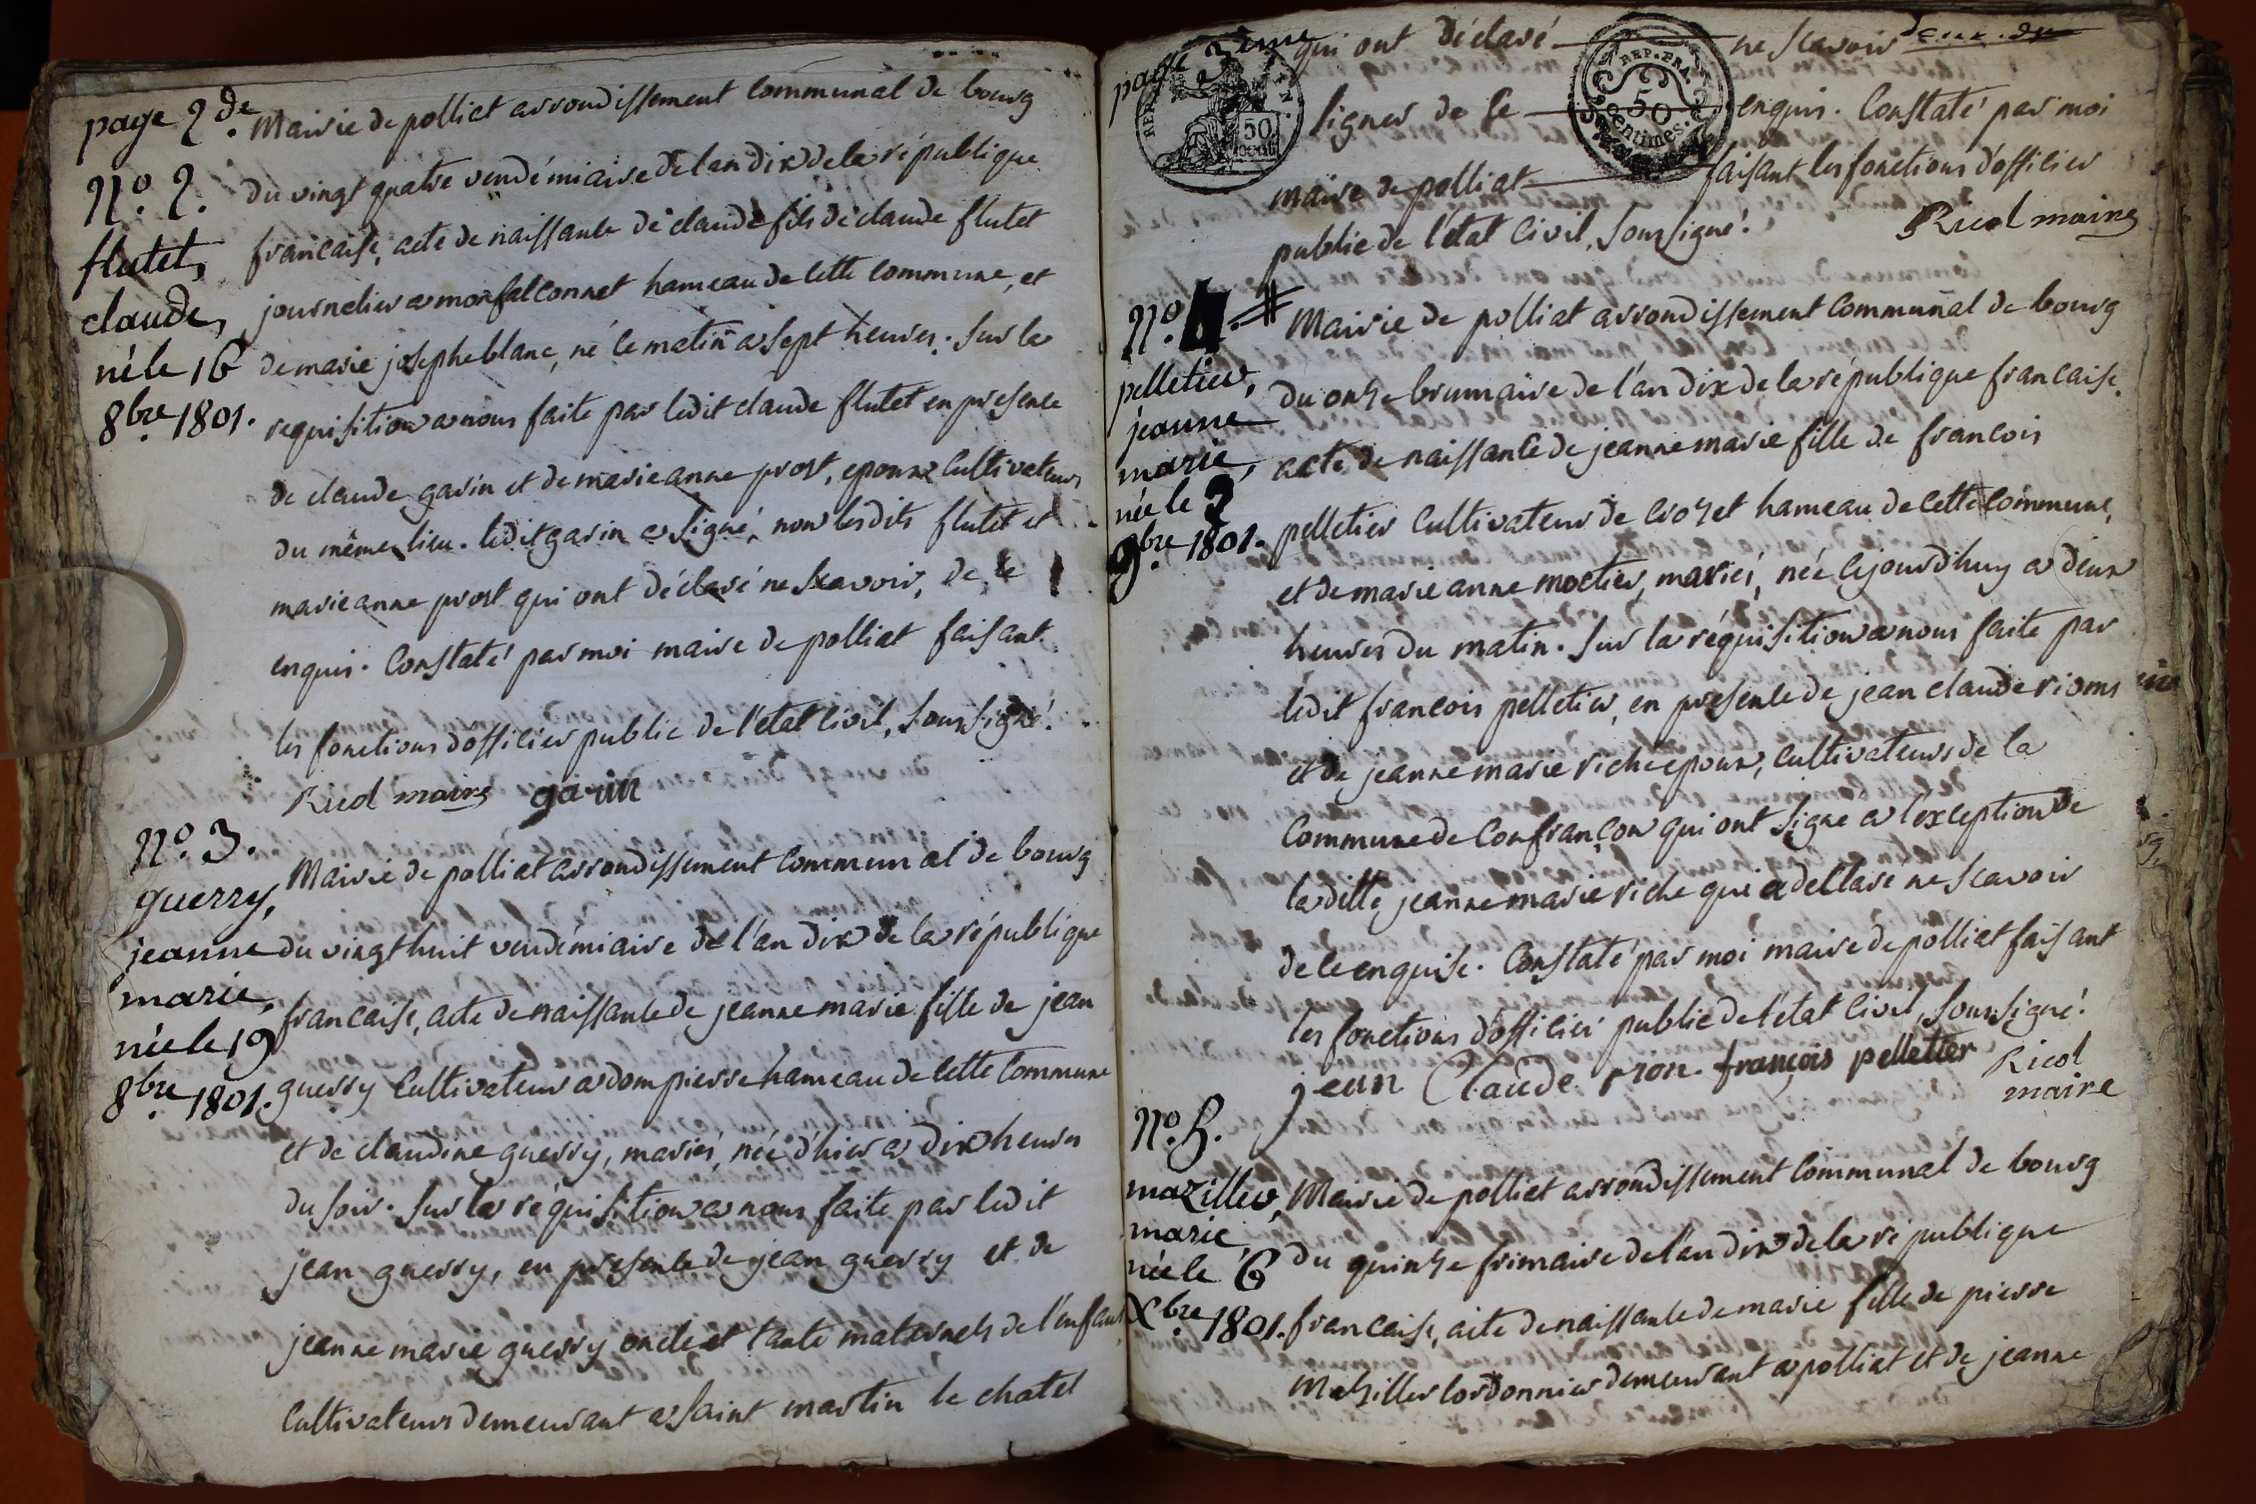 page 2de.
Mairie de polliat arrondissement Communal de bourg
N.o 2.
flutet,
claude,
né le 16
8.bre 1801.
du vingt quatre vendémiaire de lan dix de la république
francaise, acte de naissance de claude fils de claude flutet
journelier a monfalconnet hameau de cette commune, et
de marie josephe blanc, né le matin a sept heures. Sur la
requisition a nous faite par ledit claude flutet en presence
de claude garin et de marie anne prost, epoux cultivateurs
du même lieu. ledit garin a signé, non lesdits flutet et
marie anne prost qui ont déclaré ne scavoir, de ce
enquis. Constaté par moi maire de polliat faisant
les fonctions d'officier public de l'etat civil, soussigné.
Ricol maire garin
N.o 3.
guerry,
jeanne
marie,
née le 19
8.bre 1801.
Mairie de polliat arrondissement Communal de bourg
du vingt huit vendémiaire de l'an dix de la république
francaise, acte de naissance de jeanne marie fille de jean
guerry Cultivateur a dompierre hameau de cette Commune
et de claudine guerry, mariés, née d'hier a dix heures
du soir. Sur la réquisition a nous faite par ledit
jean guerry, en presence de jean guerry et de
jeanne marie guerry oncle et tante maternels de l'enfant
Cultivateurs demeurant a saint martin le chatel
page 3.eme
qui ont déclaré ne scavoir
REP. FRA.
50
centimes.
50
cent.
signer de ce enquis. Constaté par moi
maire de polliat faisant les fonctions d'officier
public de l'état civil, soussigné.
Ricol maire
N.o 4.
pelletier,
jeanne
marie,
née le 2
9.bre 1801.
Mairie de polliat arrondissement Communal de bourg
du onze brumaire de l'an dix de la république francaise.
acte de naissance de jeanne marie fille de francois
pelletier Cultivateur de crozet hameau de cette commune,
et de marie anne moctier, mariés, née cejourdhuy a deux
heures du matin. Sur la réquisition a nous faite par
ledit francois pelletier, en presence de jean claude rions
et de jeanne marie riche epoux, cultivateurs de la
Commune de Confrançon qui ont signe a l'exception de
la ditte jeanne marie riche qui a declare ne scavoir
de ce enquise. Constaté par moi maire de polliat faisant
les fonctions d'officier public de l'état civil, soussigné.
jean Claude rion françois pelletier Ricol
maire
N.o 5.
mazillier,
marie,
née le 6
X.bre 1801.
Mairie de polliat arrondissement Communal de bourg
du quinze frimaire de l'an dix de la république
francaise, acte de naissance de marie fille de pierre
Mazillier Cordonnier demeurant a polliat et de jeanne